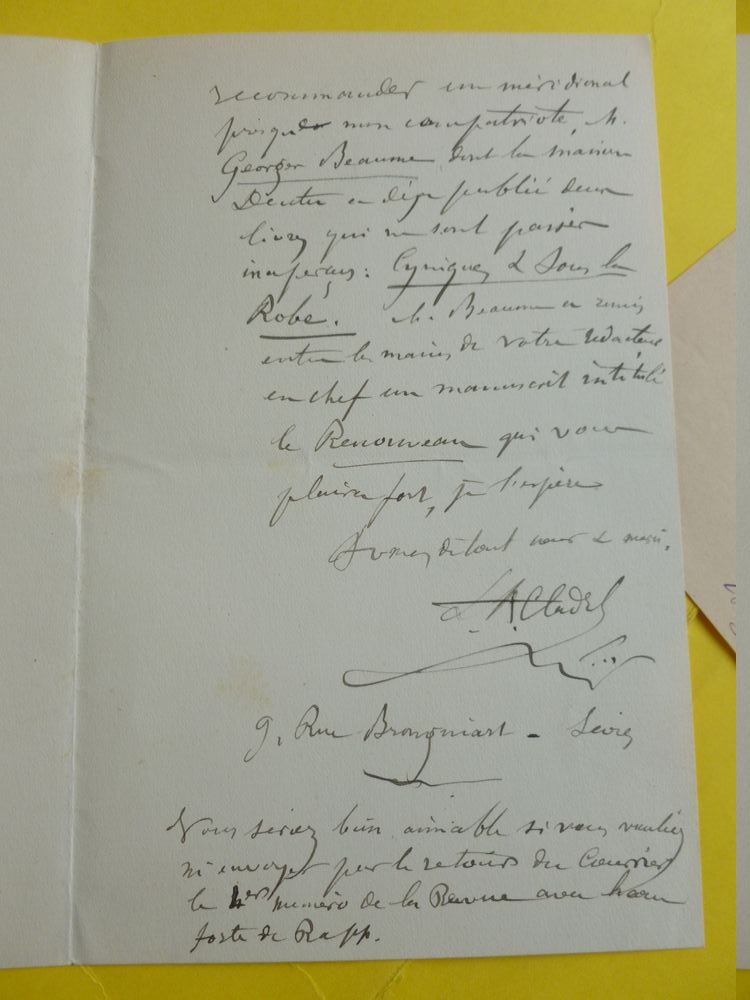 recommander un méridional
presque mon compatriote, M.
Georges Beaume dont la maison
Dentu a déjà publié deux
livres qui ne sont passés
inaperçus : Cyniques & Sous la
Robe. M. Beaume a remis
entre les mains de votre rédacteur
en chef un manuscrit intitulé
le Renouveau qui vous
plaira fort, je l'espère
de tout cœur & merci.
L. A. Cladel
9, Rue Brongniart - Sèvres
Vous seriez bien aimable si vous vouliez
m'envoyer par le retour du Courrier
le 1er numéro de la Revue avec
de Rapp.